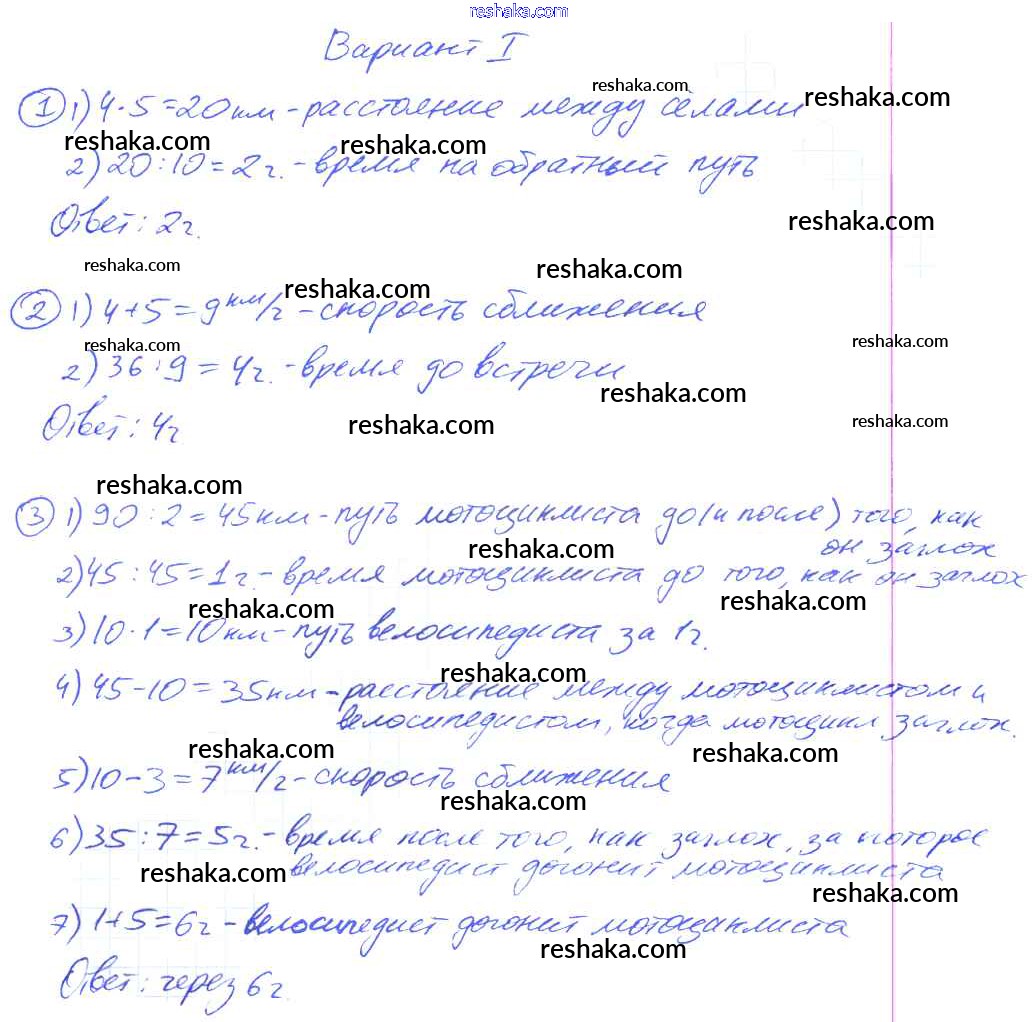 reshaka.com
Вариант I
reshaka.com
① 1) 4·5=20км - расстояние между сёлами reshaka.com
reshaka.com reshaka.com
2) 20:10=2ч. - время на обратный путь
Ответ: 2ч. reshaka.com
reshaka.com reshaka.com
reshaka.com
② 1) 4+5=9км/ч - скорость сближения
reshaka.com reshaka.com
2) 36:9=4ч. - время до встречи
reshaka.com
Ответ: 4ч reshaka.com reshaka.com
reshaka.com
③ 1) 90:2=45км - путь мотоциклиста до (и после) того, как
он заглох
reshaka.com
2) 45:45=1ч. - время мотоциклиста до того, как он заглох
reshaka.com reshaka.com
3) 10·1=10км - путь велосипедиста за 1ч.
reshaka.com
4) 45-10=35км - расстояние между мотоциклистом и
велосипедистом, когда мотоцикл заглох.
reshaka.com reshaka.com
5) 10-3=7км/ч - скорость сближения
reshaka.com
6) 35:7=5ч. - время после того, как заглох, за которое
reshaka.com велосипедист догонит мотоциклиста
reshaka.com
7) 1+5=6ч - велосипедист догонит мотоциклиста
reshaka.com
Ответ: через 6ч.